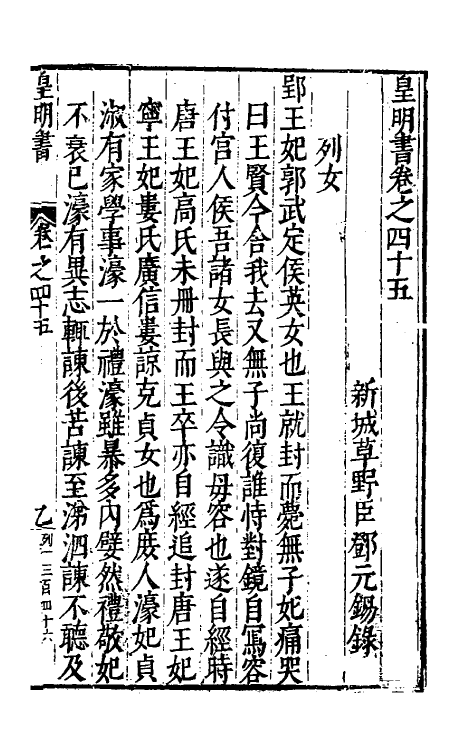 皇明書卷之四十五
新城草野臣鄧元錫錄
列女
郢王妃郭武定侯英女也王就封而薨無子妃痛哭
曰王賢今舍我去又無子尚復誰恃對鏡自寫容
付宮人俟吾諸女長與之令識母容也遂自經時
唐王妃高氏未冊封而王卒亦自經追封唐王妃
寧王妃婁氏廣信婁諒克貞女也為庻人濠妃貞
淑有家學事濠一於禮濠雖暴多內嬖然禮敬妃
不衰已濠有異志輒諫後苦諫至涕泗諫不聽及
皇明書
卷之四十五
乙
列一三百四十六